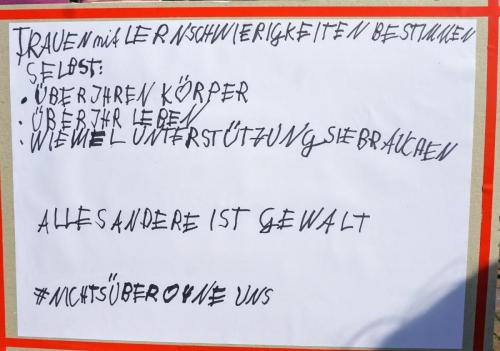 FRAUEN mit LERNSCHWIERIGKEITEN BESTIMMEN
SELBST:
• ÜBER JHREN KÖRPER
• ÜBER JHR LEBEN
• WIEWIEL UNTERSTÜTZUNG SIE BRAUCHEN
ALLES ANDERE IST GEWALT
#NICHTSÜBER OHNE UNS